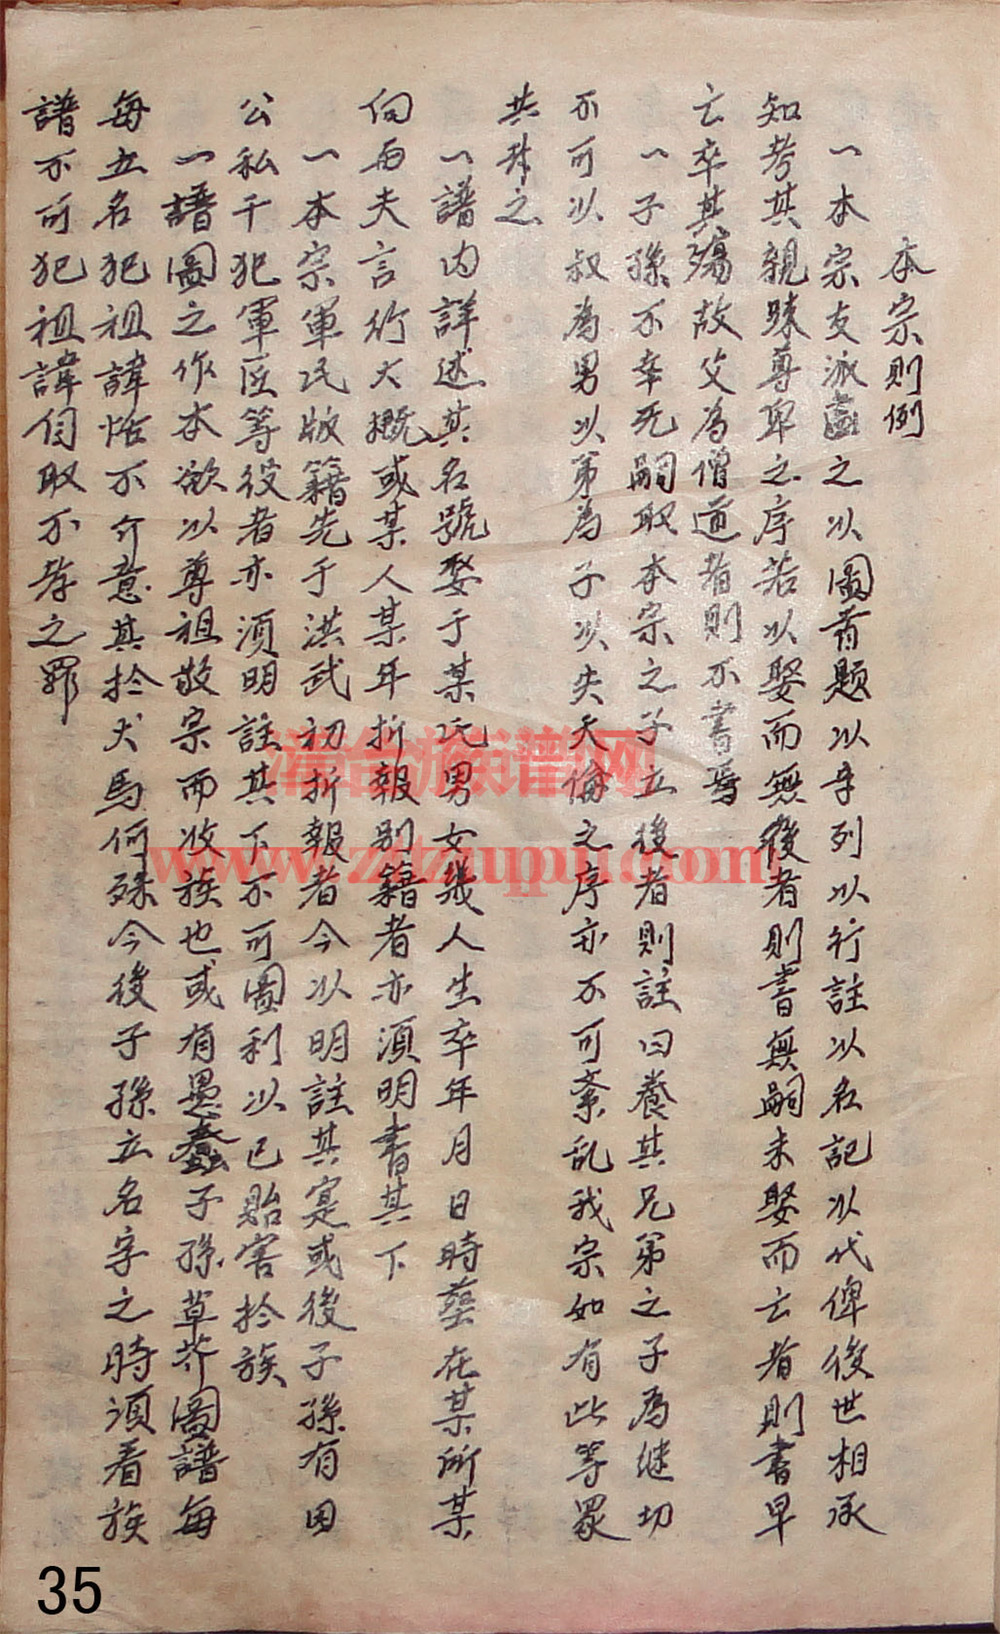 本宗則例
一本宗支派畵之以圖首題以字列以行註以名記以代俾後世相承
知考其親踈尊卑之序若以娶而無後者則書無嗣未娶而亡者則書早
亡卒其殤故父為僧道者則不書焉
一子孫不幸死嗣取本宗之子立後者則註曰養其兄弟之子為継切
不可以叔為男以弟為子以失天倫之序亦不可紊乱我宗如有此等眾
共
之
一譜内詳述其名號娶于某氏男女幾人生卒年月日時塟在某所某
向而夫言行大概或某人某年折報别籍者亦須明書其下
一本宗軍民版籍先于洪武初折報者今以明註其寔或後子孫有因
公私干犯軍匠等役者亦須明註其下不可圖利以已貽害扵族
一譜圖之作本欲以尊祖敬宗而收族也或有愚蠢子孫草芥圖譜每
每立名犯祖諱恬不介意其扵犬馬何殊今後子孫立名字之時須看族
譜不可犯祖諱自取不孝之罪
漳台族谱网
www.ztzupu.com
35